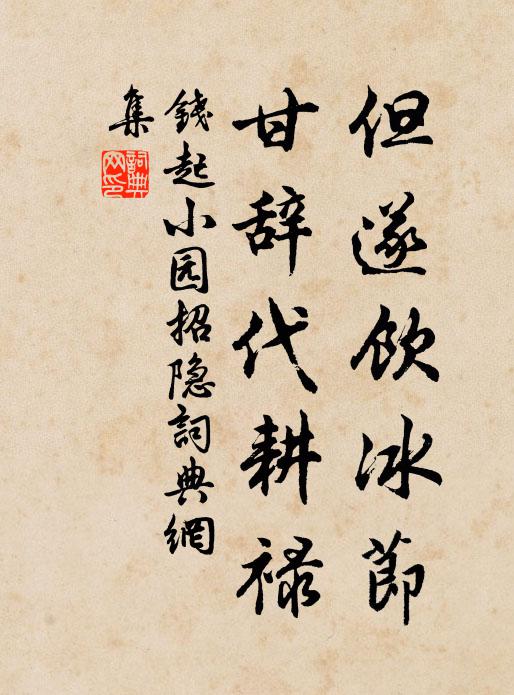 但遂飲冰節
甘辞代耕禄
錢起小园招隐詞典網
集
詞典
网印